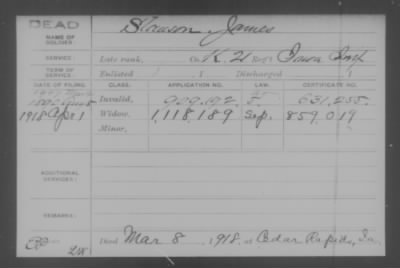 DEAD
NAME OF SOLDIER: Slawson James
SERVICE: Late rank, Co. K, 21 Reg't Iowa Inf
TERM OF SERVICE: Enlisted , 1 Discharged , 1
DATE OF FILING. CLASS. APPLICATION NO. LAW. CERTIFICATE NO.
Invalid,
1918 Apr 1 Widow, 1,118,189 Sep. 859,019
Minor,
ADDITIONAL SERVICES:
REMARKS:
Died Mar 8, 1918, at Cedar Rapids, Ia.